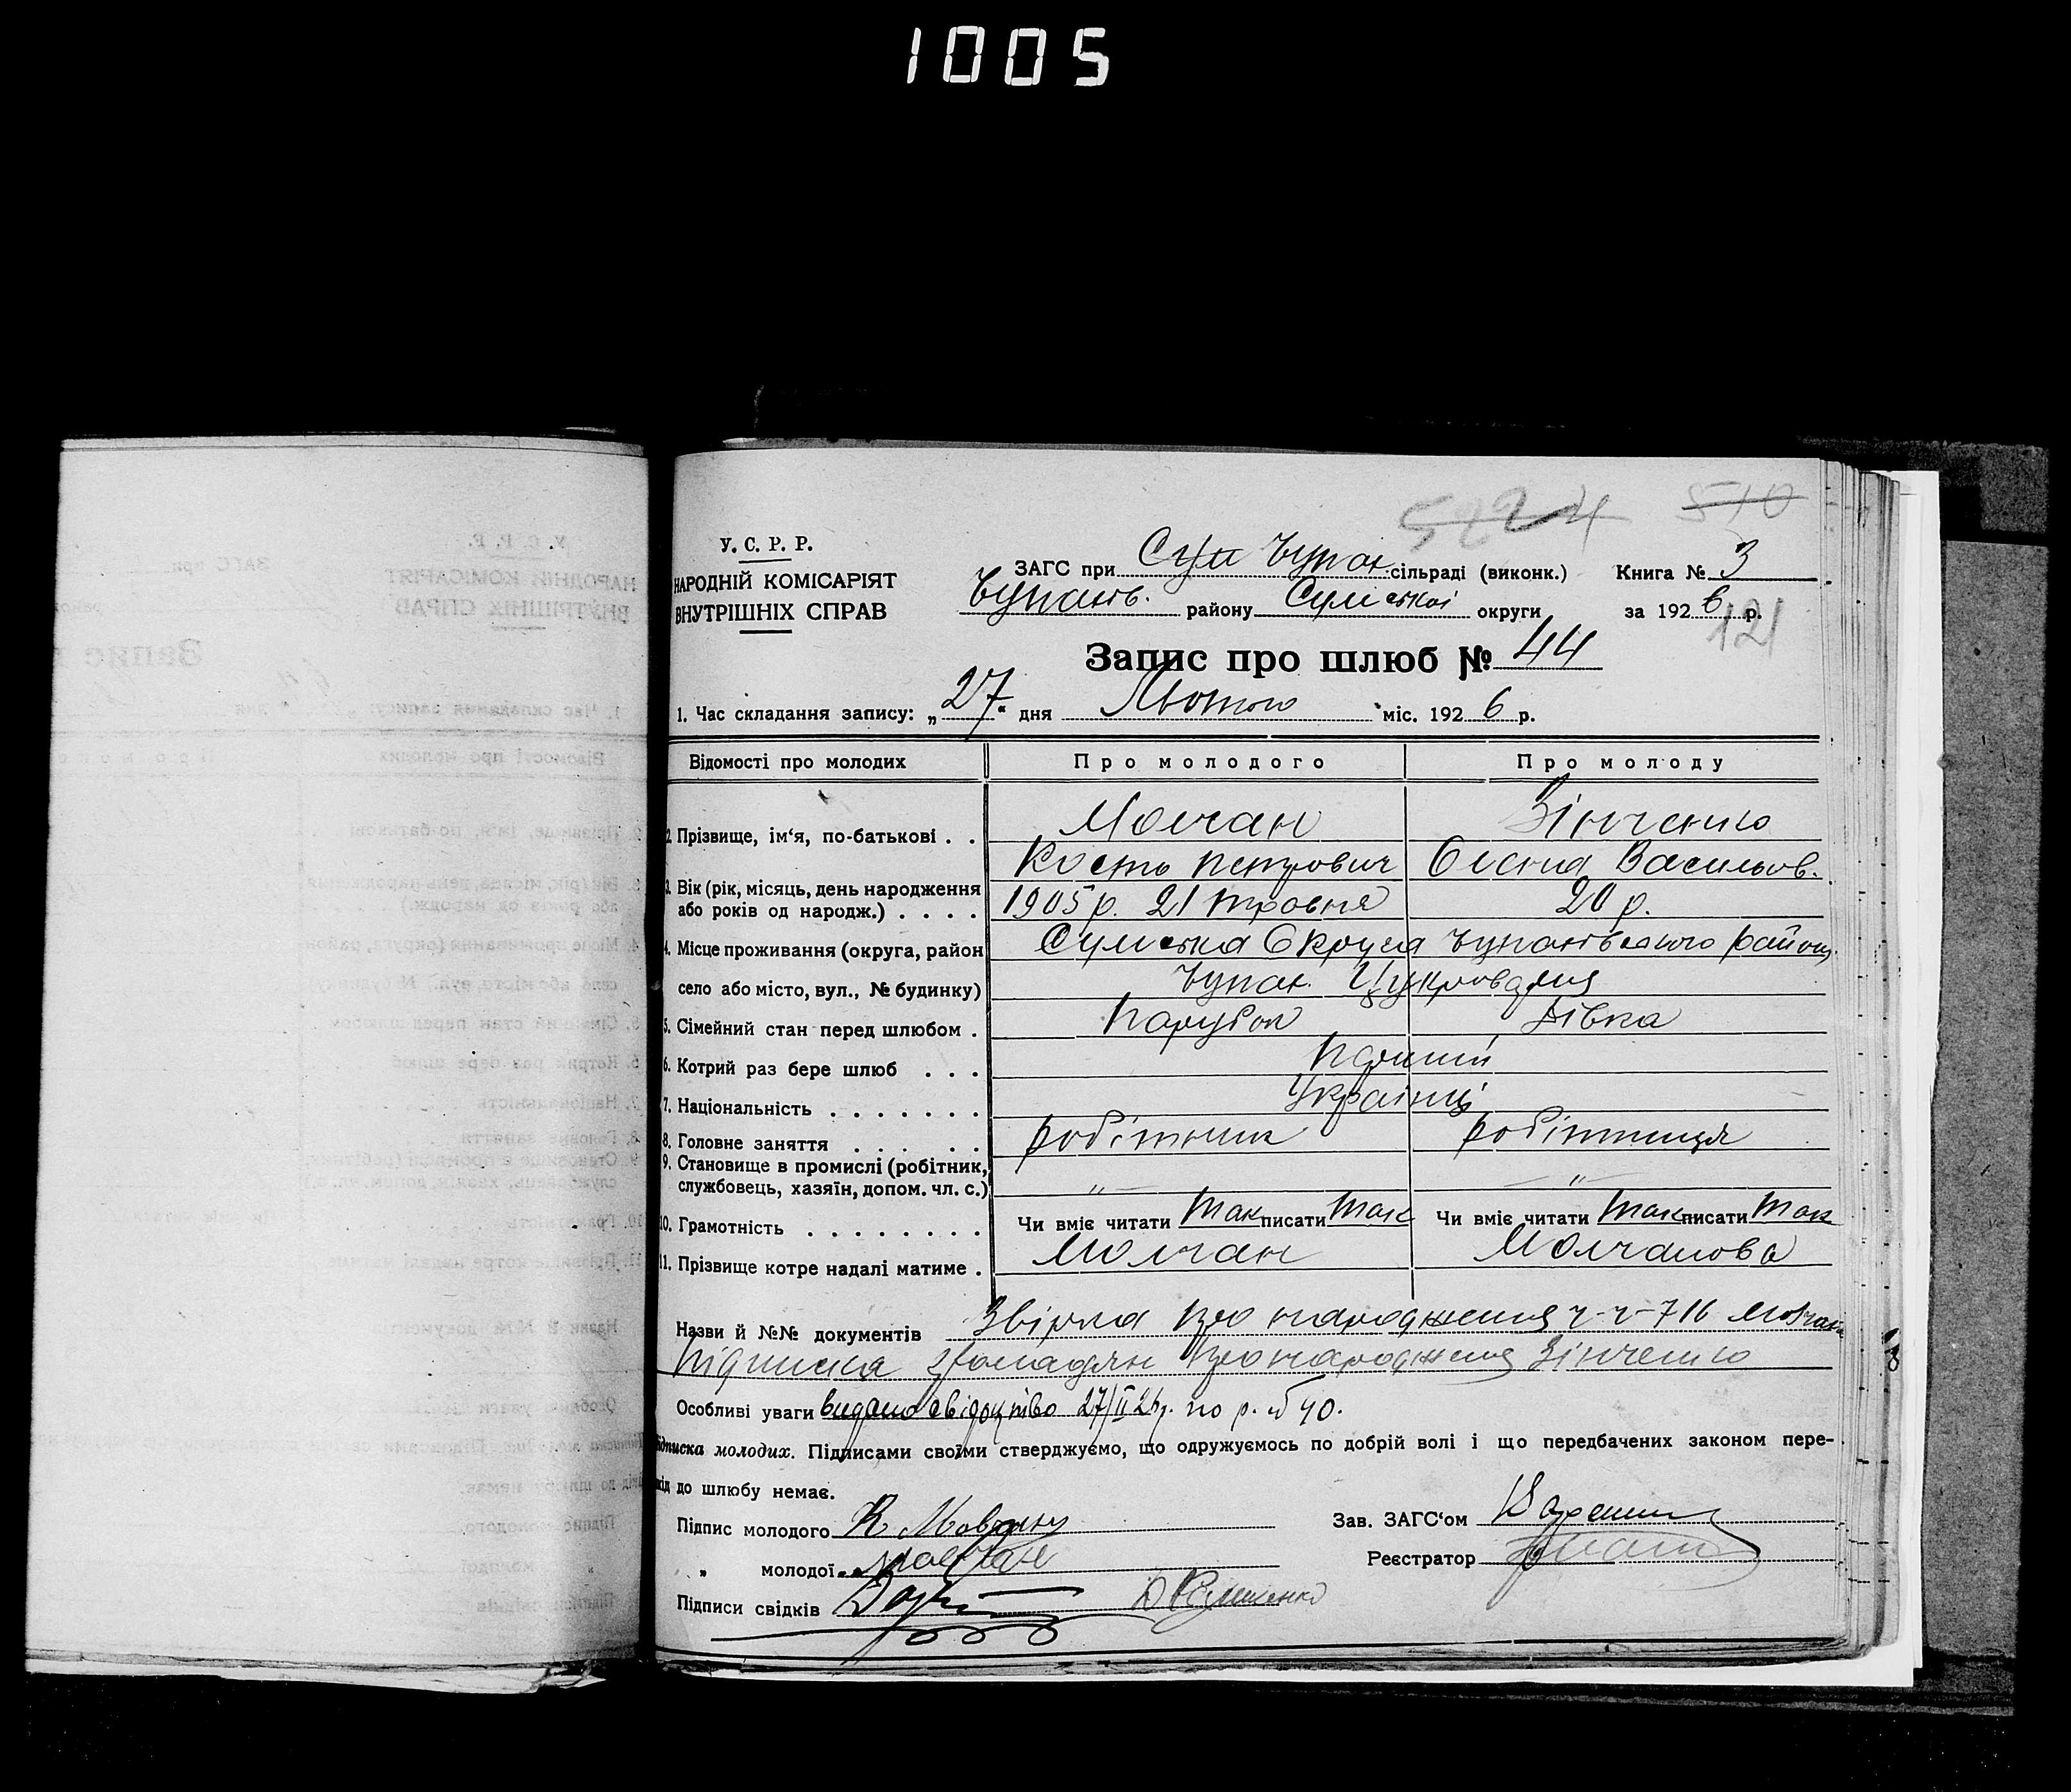 1005
5224 510
У. С. Р. Р.
НАРОДНІЙ КОМІСАРІЯТ
ВНУТРІШНІХ СПРАВ
ЗАГС при Чупах. сільраді (виконк.) Книга № 3
Чупахів. району Сумської округи за 1926 р.
121
Запис про шлюб № 44
1. Час складання запису: „27“ дня Лютого міс. 1926 р.
Відомості про молодих Про молодого Про молоду
2. Прізвище, ім‘я, по-батькові . . Молчан Зінченко
Кость Петрович Олена Васильов.
3. Вік (рік, місяць, день народження
або років од народж.) . . . . 1905 р. 21 травня 20 р.
4. Місце проживання (округа, район Сумська Округа Чупахівського району
село або місто, вул., № будинку) Чупах. Цукроварня
5. Сімейний стан перед шлюбом . Парубок Дівка
6. Котрий раз бере шлюб . . . Перший
7. Національність . . . . . . . Українці
8. Головне заняття . . . . . . робітник робітниця
9. Становище в промислі (робітник,
службовець, хазяїн, допом. чл. с.) „ „
10. Грамотність . . . . . . . . Чи вміє читати так писати так Чи вміє читати так писати так
11. Прізвище котре надалі матиме . Молчан Молчанова
Назви й №№ документів про народження ч-ч-716
Підписка громадян про народження Зінченко
Особливі уваги видано свідоцтво 27/II 26 р. по р. № 40.
Підписка молодих. Підписами своїми стверджуємо, що одружуємось по добрій волі і що передбачених законом пере-
шкід до шлюбу немає.
Підпис молодого К Мовчан Зав. ЗАГС‘ом
„ молодої Молчан Реєстратор
Підписи свідків